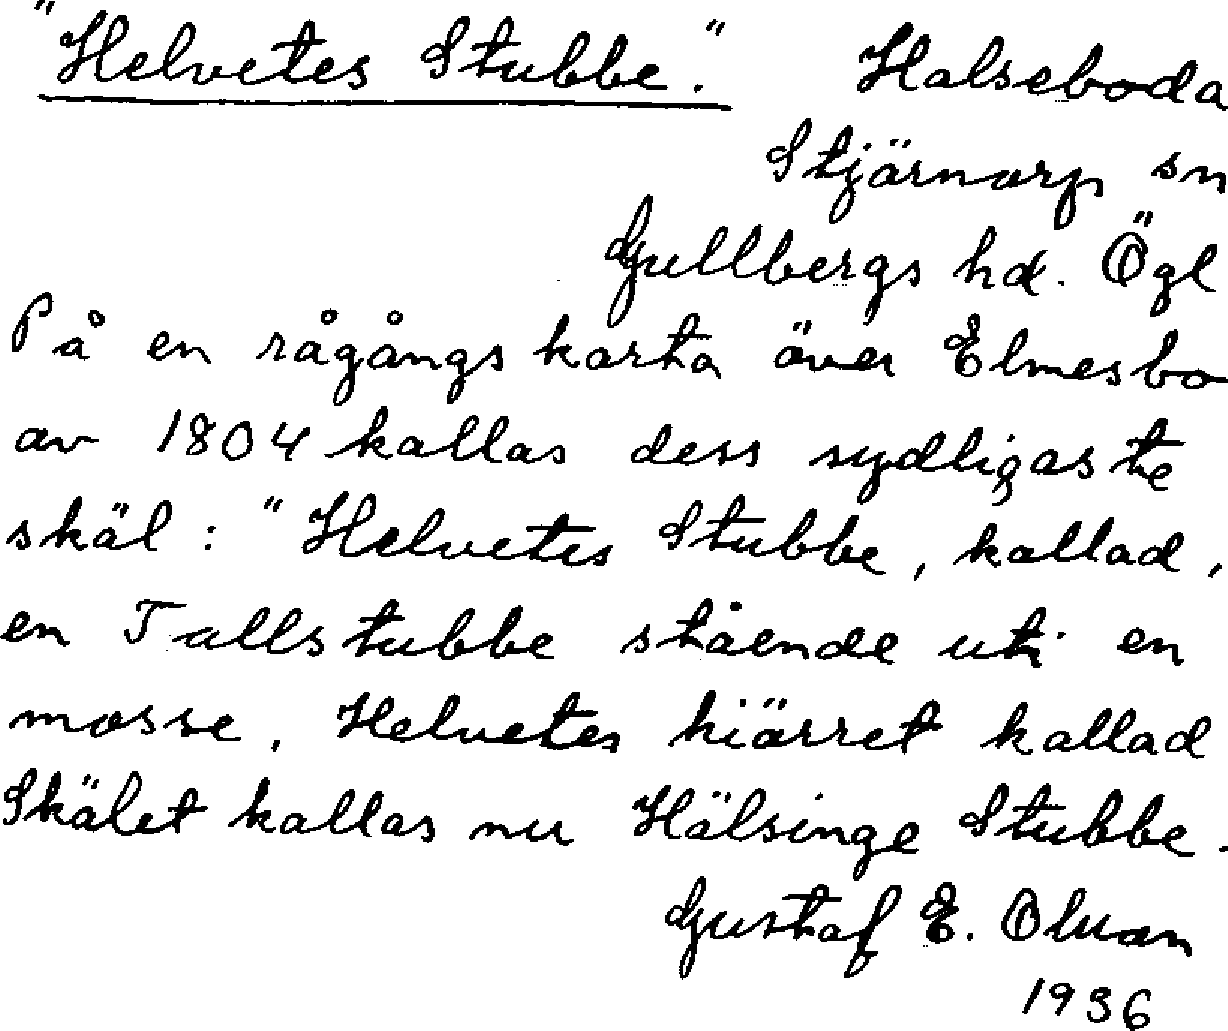 "Helvetes Stubbe." Halseboda
Stjärnorp sn
Gullbergs hd. Ögl
På en rågångs karta över Elmesbo
av 1804 kallas dess sydligaste
skäl: "Helvetes Stubbe, kallad,
en Tallstubbe stående uti en
mosse, Helvetes kiärret kallad
Skälet kallas nu Hälsinge Stubbe.
Gustaf E. Olsson
1936